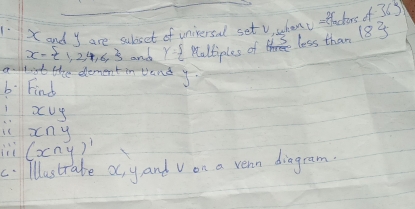 1. X and y are subset of universal set U, when U = {factors of 36}
x = {1, 2, 4, 6, } and Y { Multiples of 3 less than 18}
a. List the element in U and y.
b. Find
i x∪y
ii x∩y
iii (x∩y)'
c. Illustrate x, y and U on a venn diagram.